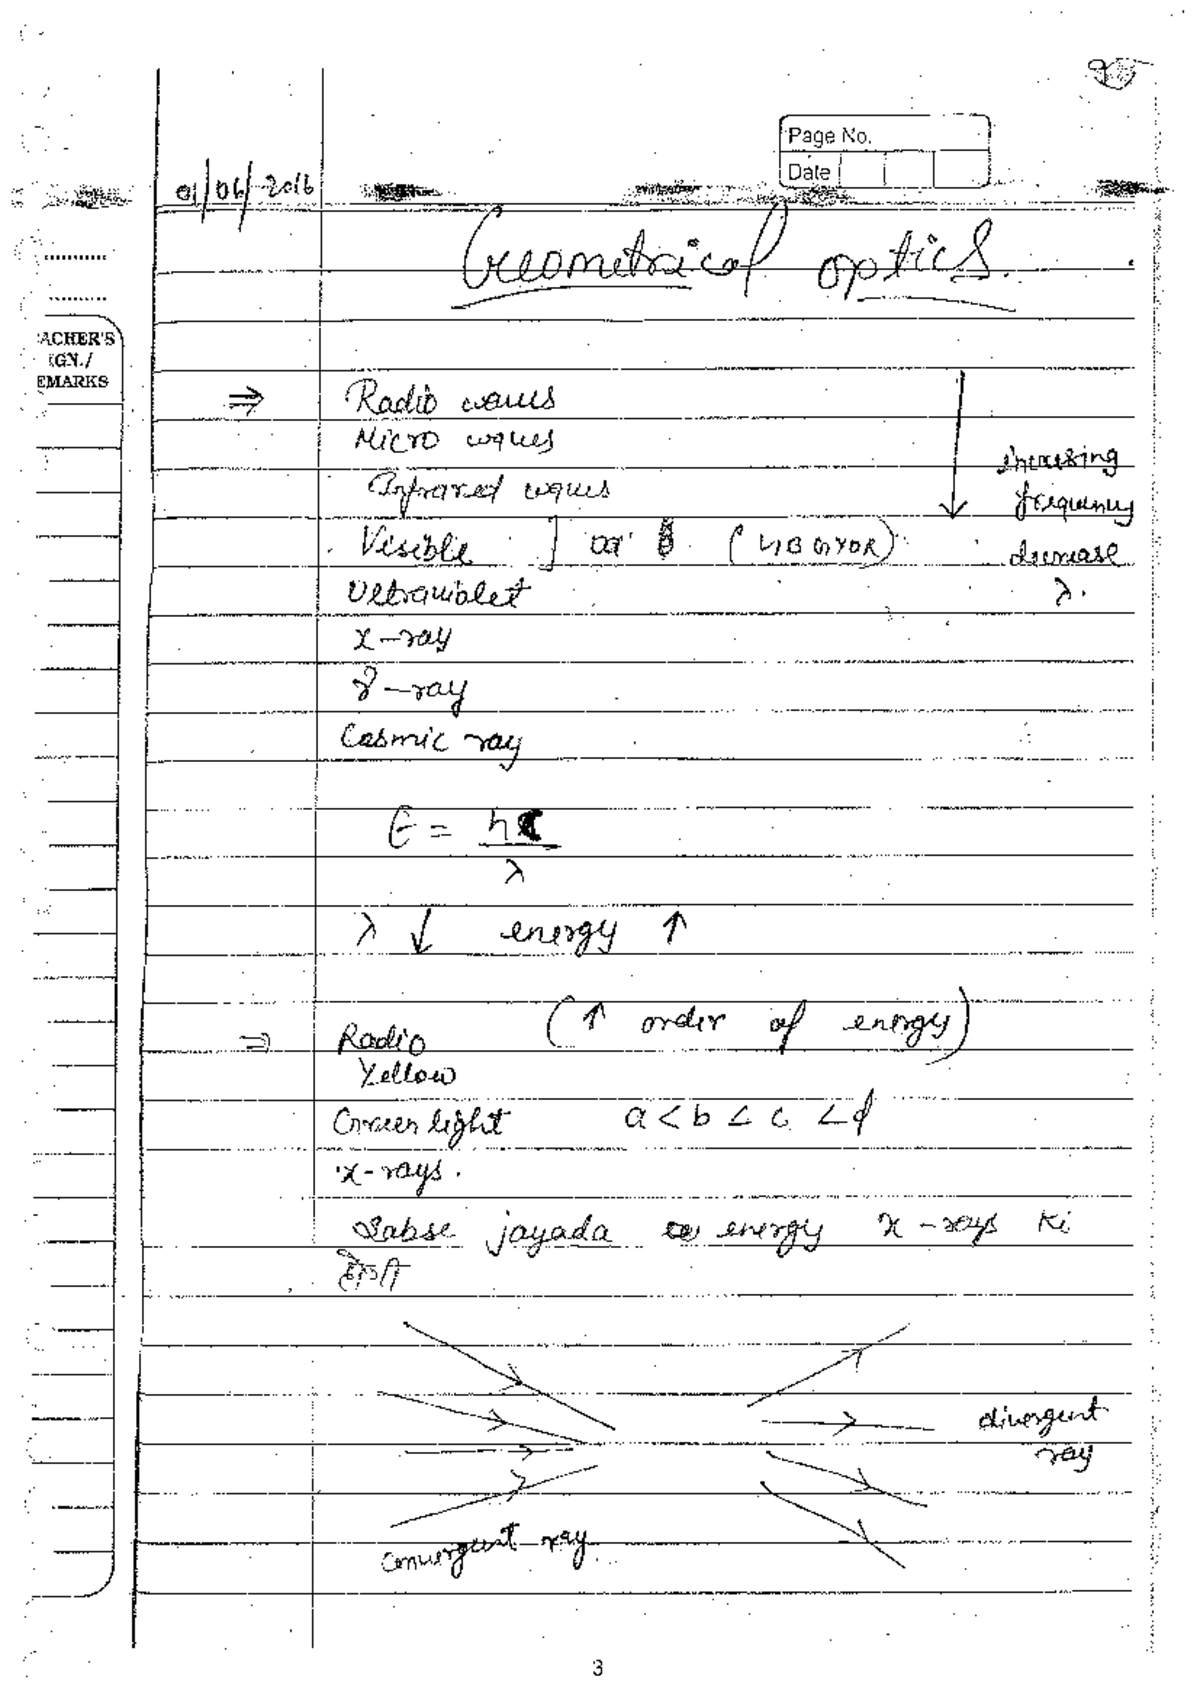 Page No.
Date
01/06/2016
Geometrical optics.
ACHER'S
IGN./
EMARKS
⇒ Radio waves
Micro waves
Infrared waves
increasing
frequency
Visible ] (VIBGYOR)
decrease
λ.
Ultraviolet
x-ray
γ-ray
Cosmic ray
E = hc/λ
λ ↓ energy ↑
⇒ Radio (↑ order of energy)
Yellow
Green light a < b < c < d
x-rays.
Sabse jayada energy x-rays ki
होगी
divergent
ray
convergent ray
3